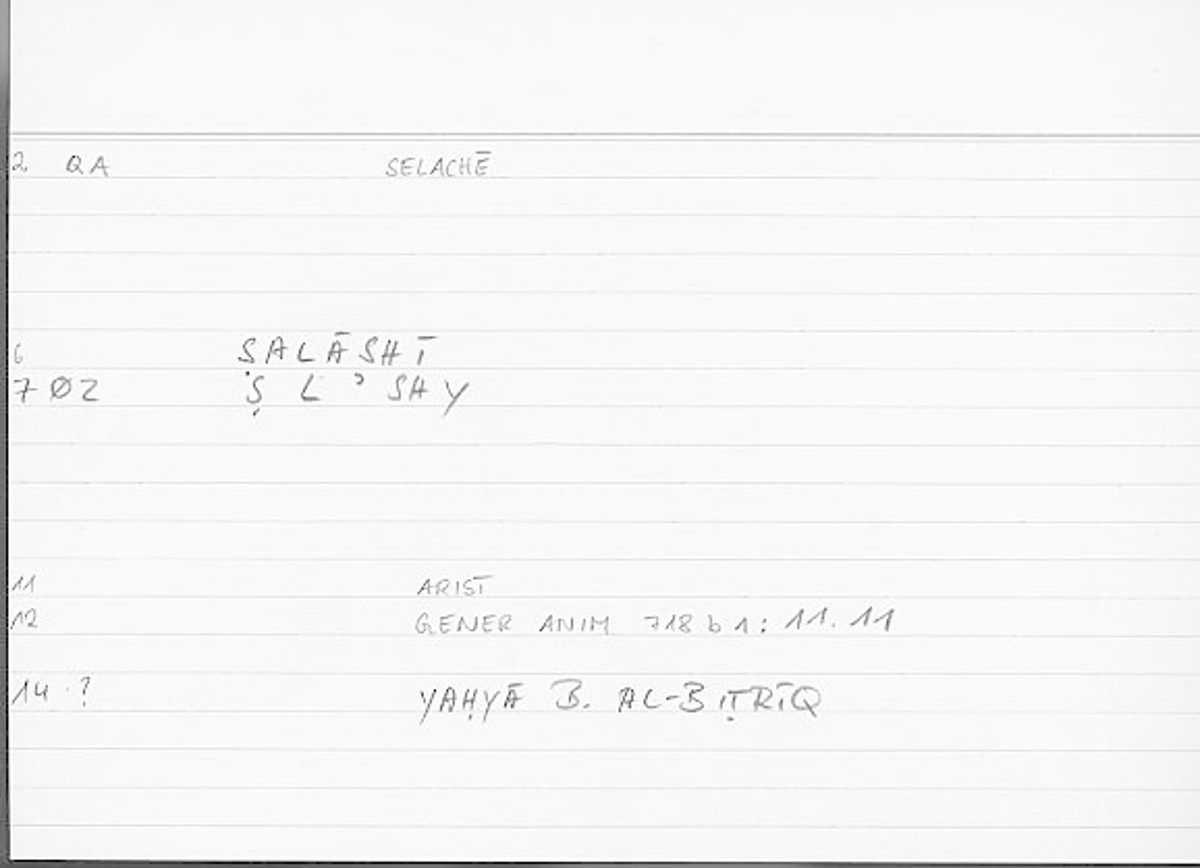 2 QA SELACHĒ
6 ṢALĀSHĪ
7 Ø2 Ṣ L ʾ SH Y
11 ARIST
12 GENER ANIM 718 b 1 : 11.11
14 ? YAḤYĀ B. AL-BIṬRĪQ